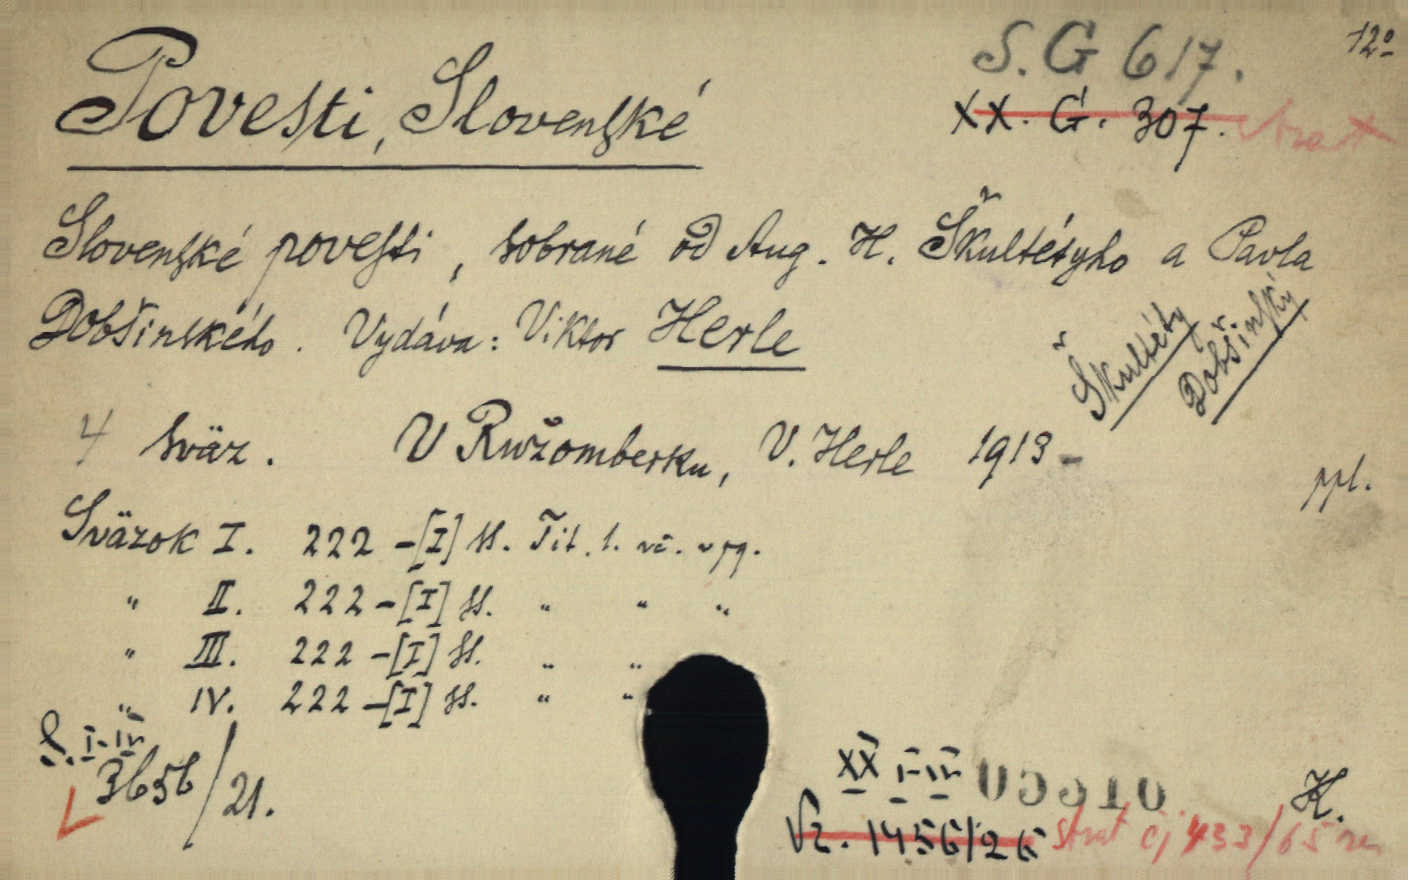 S. G 617.
12º
Povesti, Slovenské
XX. G. 307. strat
Slovenské povesti, sobrané od Aug. H. Škultétyho a Pavla
Dobšinského. Vydáva: Viktor Herle
Škultéty
Dobšinský
4 sväz. V Ružomberku, V. Herle 1913-
ppl.
Sväzok I. 222-[I] ss. Tit. l. vč.
" II. 222-[I] ss. " " "
" III. 222-[I] ss. " "
" IV. 222-[I] ss. " "
I-IV
3656/21.
XX I-IV
H.
Vz. 1456/26 strat čj 433/65